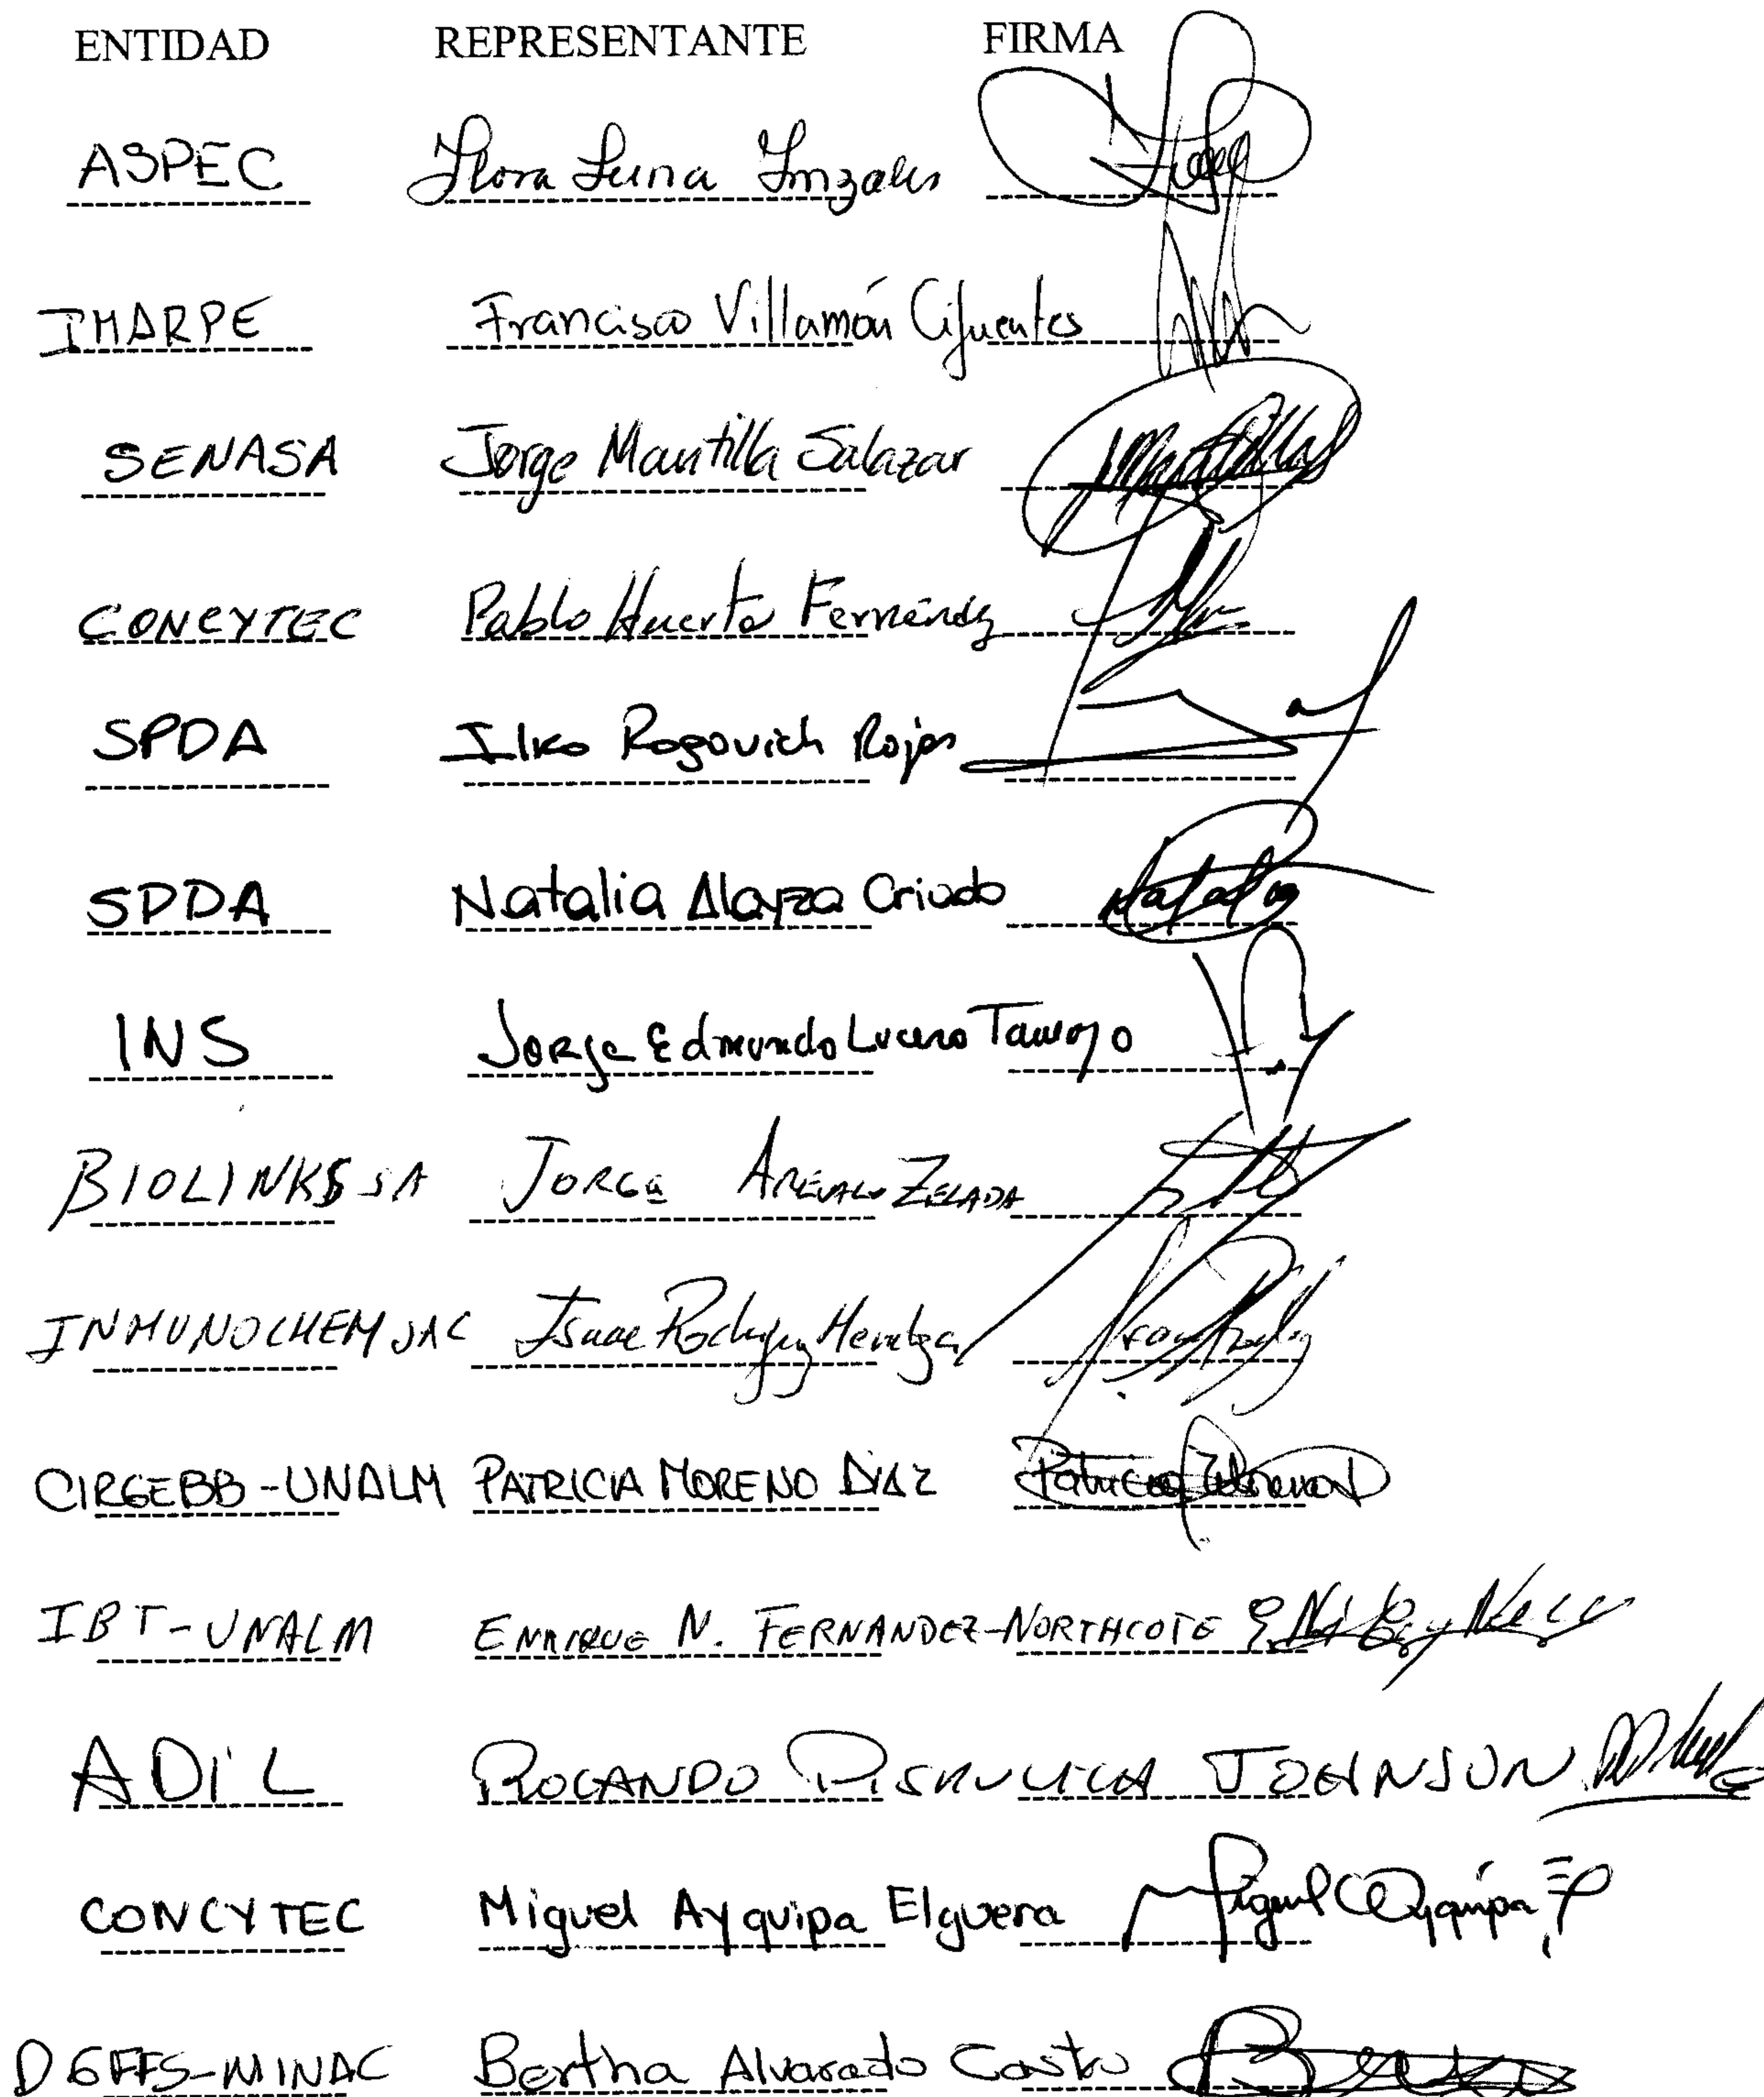 ENTIDAD REPRESENTANTE FIRMA
ASPEC Flora Luna Gonzales
IMARPE Francisco Villamón Cifuentes
SENASA Jorge Mantilla Salazar
CONCYTEC Pablo Huerta Fernández
SPDA Ilko Rogovich Rojas
SPDA Natalia Alayza Criado Natalia
INS Jorge Edmundo Lucero Tamayo
BIOLINKS SA JORGE AREVALO ZELADA
INMUNOCHEM SAC Isaac Rodriguez
CIRGEBB-UNALM PATRICIA MORENO DIAZ Patricia Moreno D
IBT-UNALM ENRIQUE N. FERNANDEZ-NORTHCOTE
ADIL ROLANDO PISKULICH JOHNSON
CONCYTEC Miguel Ayquipa Elguera Miguel Ayquipa E
DGFFS-MINAG Bertha Alvarado Castro